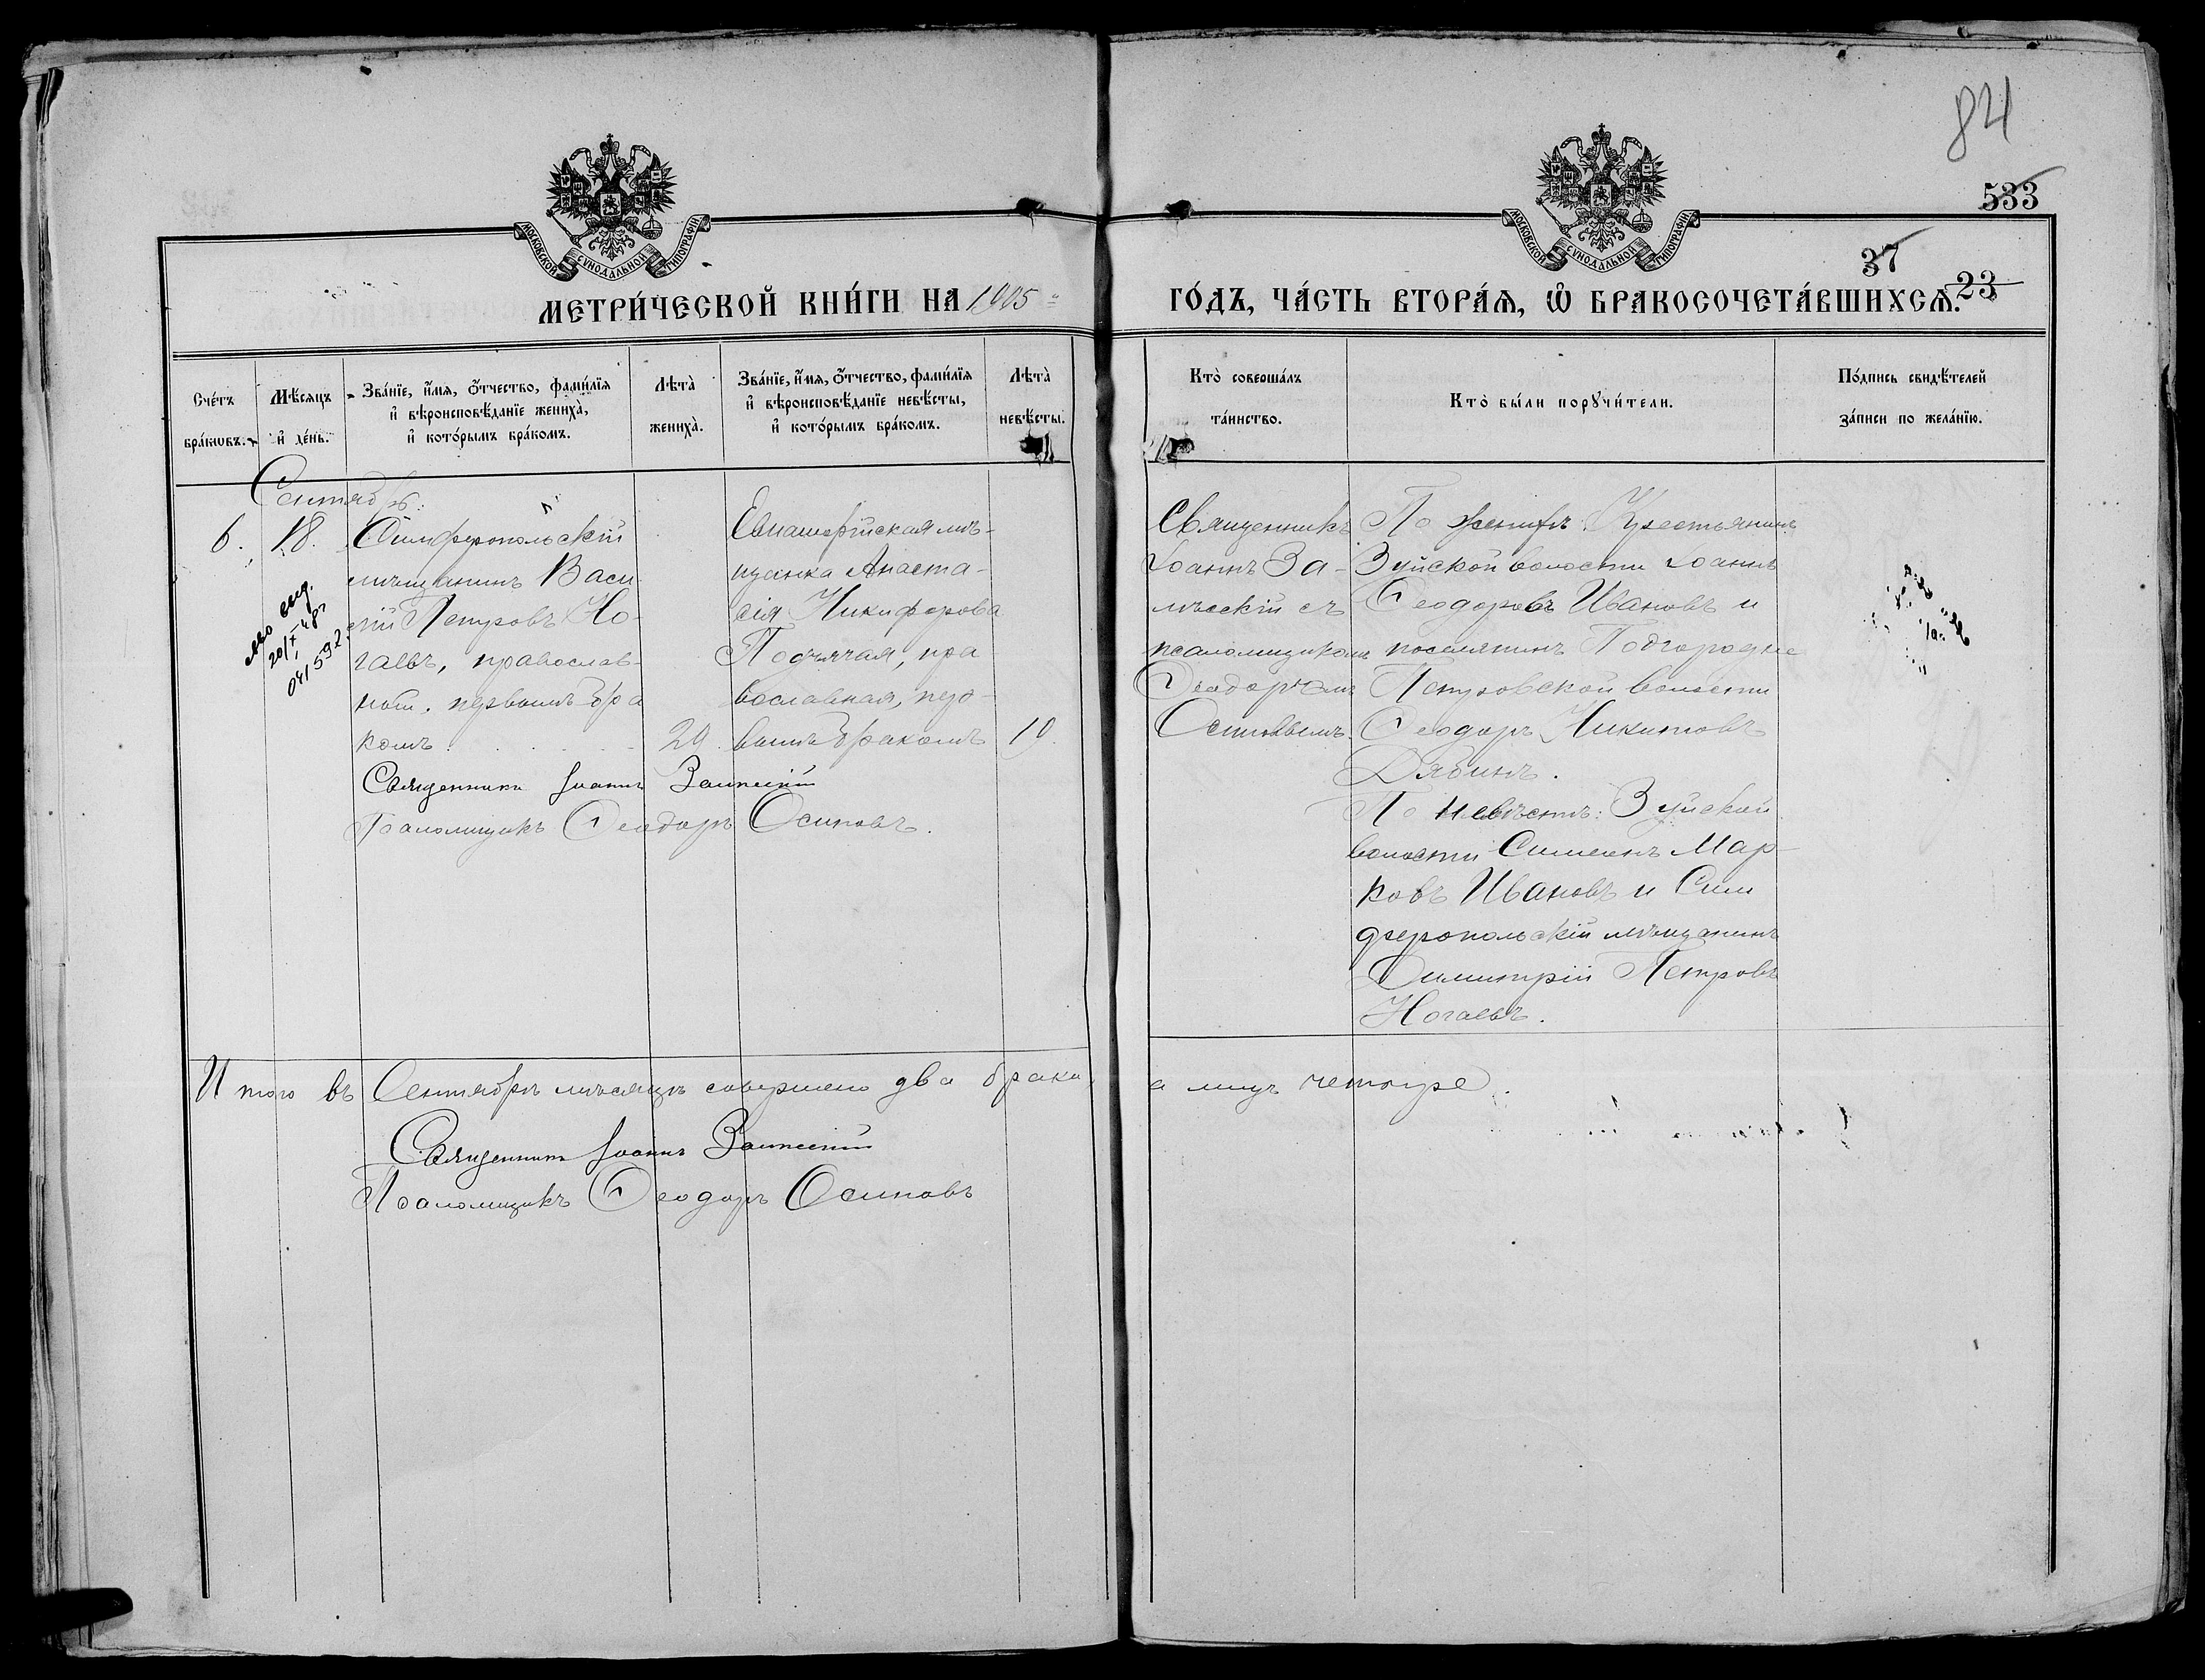 84
533
37
23
МОСКОВСКОЙ СѴНОДАЛЬНОЙ ТИПОГРАФІИ
МОСКОВСКОЙ СѴНОДАЛЬНОЙ ТИПОГРАФІИ
МЕТРИ́ЧЕСКОЙ КНИ́ГИ НА 1905 ГО́ДЪ, ЧА́СТЬ ВТОРА́Я, Ѽ БРАКОСОЧЕТА́ВШИХСЯ.
Сче́тъ
бра́кѡвъ.
Мѣ́сяцъ
и҆ де́нь.
Зва́нїе, и҆́мя, о҆́тчество, фами́лїя
и҆ вѣроисповѣ́данїе жениха̀,
и҆ кото́рымъ бра́комъ.
Лѣта̀
жениха̀.
Зва́нїе, и҆́мя, о҆́тчество, фами́лїя
и҆ вѣроисповѣ́данїе невѣ́сты,
и҆ кото́рымъ бра́комъ.
Лѣта̀
невѣ́сты.
Кто̀ соверша́лъ
та́инство.
Кто̀ бы́ли порꙋчи́тели.
По́дпись свидѣ́телей
за́писи по жела́нїю.
Сентябрь.
6. 18.
Симферопольскій
мѣщанинъ Васи-
лій Петровъ Но-
гаевъ, православ-
ной, первымъ бра
комъ.
29.
Евпаторійская мѣ-
щанка Анаста-
сія Никифорова
Подъячая, пра
вославная, пер-
вымъ бракомъ
19.
041592
Священникъ Іоаннъ
Псаломщикъ Ѳеодоръ Осиповъ.
Священникъ
Іоаннъ За-
мѣсскій съ
псаломщикомъ
Ѳеодоромъ
Осиповымъ.
По женихѣ: Крестьянинъ
Зуйской волости Іоаннъ
Ѳеодоровъ Ивановъ и
поселянинъ Подгородне
Петровской волости
Ѳеодоръ Никитовъ
Дябинъ.
По невѣстѣ: Зуйской
волости Симеонъ Мар-
ковъ Ивановъ и Сим
феропольскій мѣщанинъ
Димитрій Петровъ
Ногаевъ.
Итого въ Сентябрѣ мѣсяцѣ совершено два брака, а лицъ четыре.
Священникъ Іоаннъ
Псаломщикъ Ѳеодоръ Осиповъ